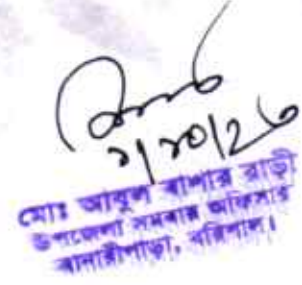 মোঃ আবুল বাশার রাড়ী
উপজেলা সমবায় অফিসার
বানারীপাড়া, বরিশাল।